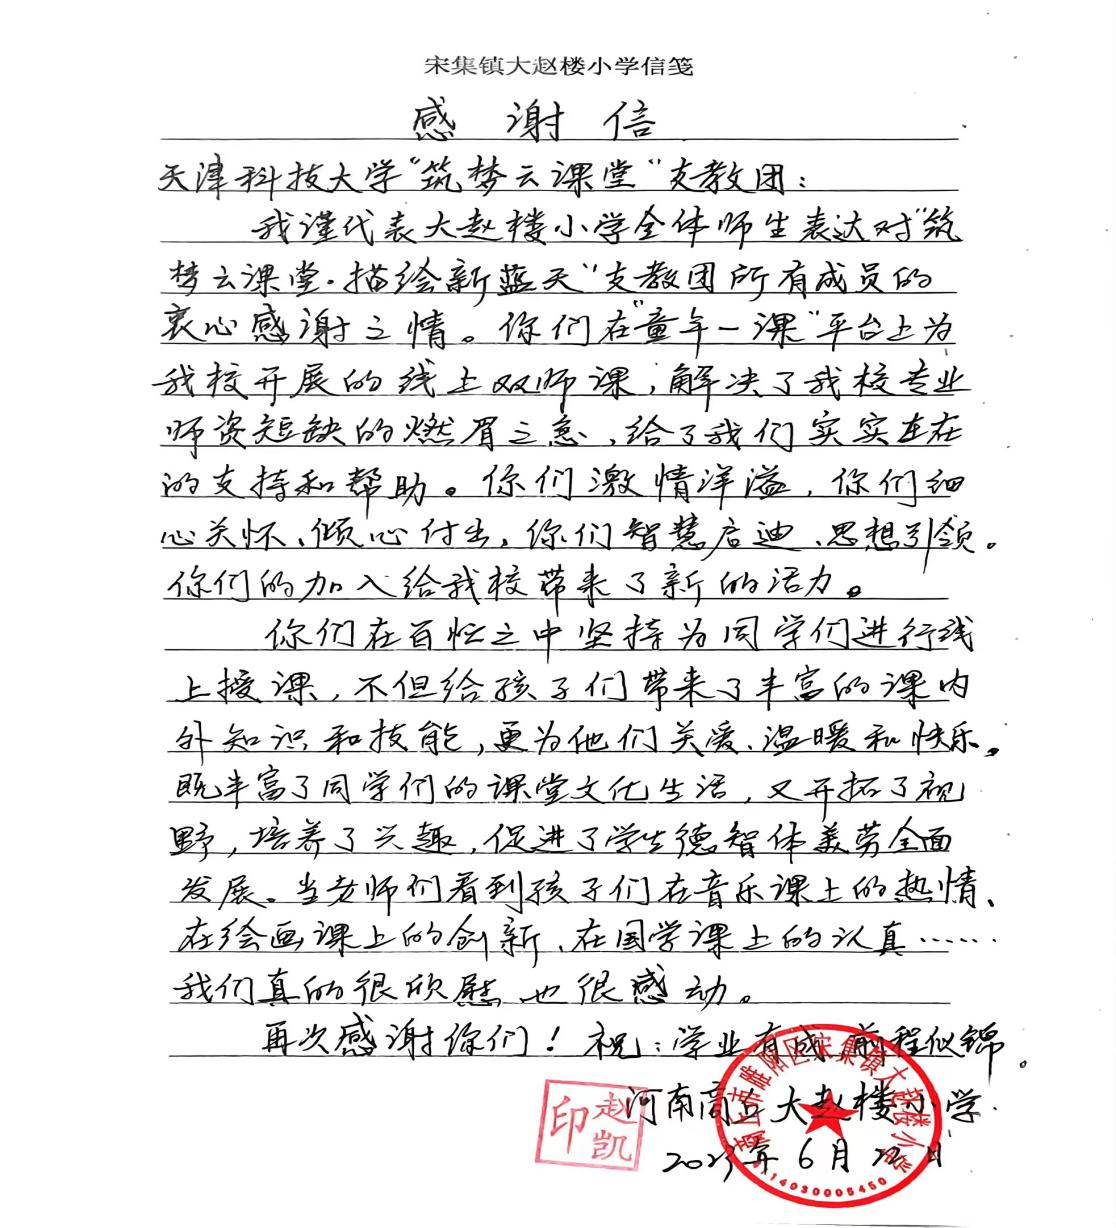 宋集镇大赵楼小学信笺
感 谢 信
天津科技大学“筑梦云课堂”支教团：
我谨代表大赵楼小学全体师生表达对“筑
梦云课堂·描绘新蓝天”支教团所有成员的
衷心感谢之情。你们在“童年一课”平台上为
我校开展的线上双师课，解决了我校专业
师资短缺的燃眉之急，给了我们实实在在
的支持和帮助。你们激情洋溢，你们细
心关怀、倾心付出，你们智慧启迪、思想引领。
你们的加入给我校带来了新的活力。
你们在百忙之中坚持为同学们进行线
上授课，不但给孩子们带来了丰富的课内
外知识和技能，更为他们关爱、温暖和快乐。
既丰富了同学们的课堂文化生活，又开拓了视
野，培养了兴趣，促进了学生德智体美劳全面
发展。当老师们看到孩子们在音乐课上的热情、
在绘画课上的创新、在国学课上的认真……
我们真的很欣慰也很感动。
再次感谢你们！祝：学业有成 前程似锦。
河南商丘大赵楼小学
2023年6月22日
赵凯印
商丘市睢阳区宋集镇大赵楼小学
4114030005450